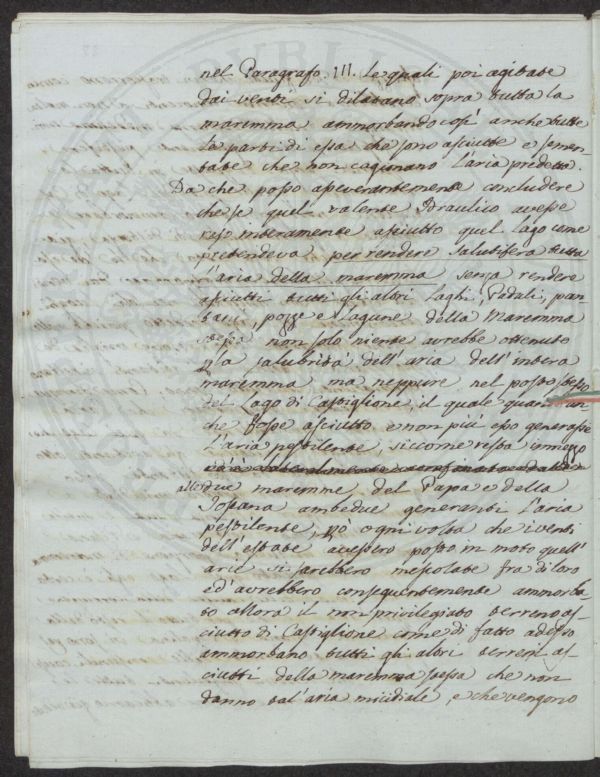 nel Paragrafo III. le quali poi agitate
dai venti si dilatano sopra tutta la
maremma ammorbando così anche tutte
le parti di essa che sono asciutte e semen-
tate che non cagionano l'aria predetta.
Da che posso asseverantemente concludere
che se quel valente Idraulico avesse
reso interamente asciutto quel lago come
pretendeva per rendere salutifera tutta
l'aria della maremma senza rendere
asciutti tutti gli altri laghi, Padali, pan-
tani, pozze e lagune della Maremma
stessa non solo niente avrebbe ottenuto
p la salubrità dell'aria dell'intera
maremma ma neppure nel posto stesso
del Lago di Castiglione, il quale quantun
che fosse asciutto e non più esso generasse
l'aria pestilente, siccome resta in mezzo
alle due maremme, del Papa e della
Toscana ambedue generanti l'aria
pestilente, pò ogni volta che i venti
dell'estate avessero posto in moto quell'
arie si sarebbero mescolate fra di loro
ed avrebbero conseguentemente ammorba-
to allora il non privilegiato terreno as-
ciutto di Castiglione come di fatto adesso
ammorbano tutti gli altri terreni as-
ciutti della maremma stessa che non
danno tal'aria micidiale, e che vengono